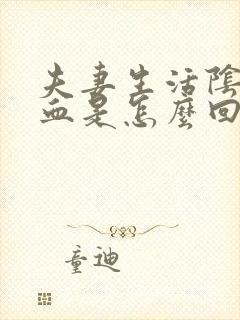 夫妻生活陰
血是怎麼回
童迪